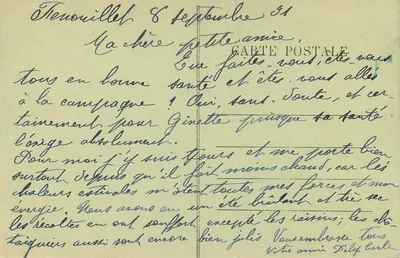 Fenouillet 8 septembre 31
Ma chère petite amie,
CARTE POSTALE
Que faites-vous, êtes-vous
tous en bonne santé et êtes-vous allés
à la campagne ? Oui, sans doute, et cer-
tainement pour Ginette puisque sa santé
l'exige absolument.
Pour moi j'y suis tjours et me porte bien
surtout depuis qu'il fait moins chaud, car les
chaleurs estivales m'ôtent toutes mes forces et mon
énergie. Nous avons eu un été brûlant et très sec
les récoltes en ont souffert excepté les raisins; les châ-
taigniers aussi sont encore bien jolis Vous embrasse tous
Votre amie